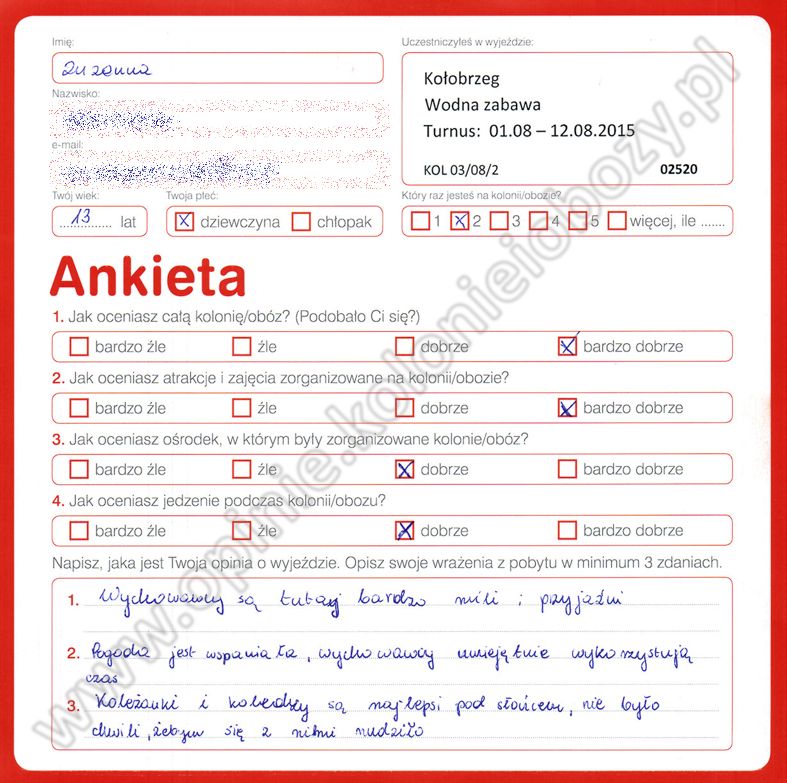 Imię:
Zuzanna
Nazwisko:
e-mail:
Twój wiek:
13 lat
Twoja płeć:
dziewczyna chłopak
Uczestniczyłeś w wyjeździe:
Kołobrzeg
Wodna zabawa
Turnus: 01.08 – 12.08.2015
KOL 03/08/2 02520
Który raz jesteś na kolonii/obozie?
1 2 3 4 5 więcej, ile .......
Ankieta
1. Jak oceniasz całą kolonię/obóz? (Podobało Ci się?)
bardzo źle źle dobrze bardzo dobrze
2. Jak oceniasz atrakcje i zajęcia zorganizowane na kolonii/obozie?
bardzo źle źle dobrze bardzo dobrze
3. Jak oceniasz ośrodek, w którym były zorganizowane kolonie/obóz?
bardzo źle źle dobrze bardzo dobrze
4. Jak oceniasz jedzenie podczas kolonii/obozu?
bardzo źle źle dobrze bardzo dobrze
Napisz, jaka jest Twoja opinia o wyjeździe. Opisz swoje wrażenia z pobytu w minimum 3 zdaniach.
1. Wychowawcy są tutaj bardzo mili i przyjaźni
2. Pogoda jest wspaniała, wychowawcy umiejętnie wykorzystują
czas
3. Koleżanki i koledzy są najlepsi pod słońcem, nie było
chwili, żebym się z nimi nudziło
www.opinie.kolonieiobozy.pl